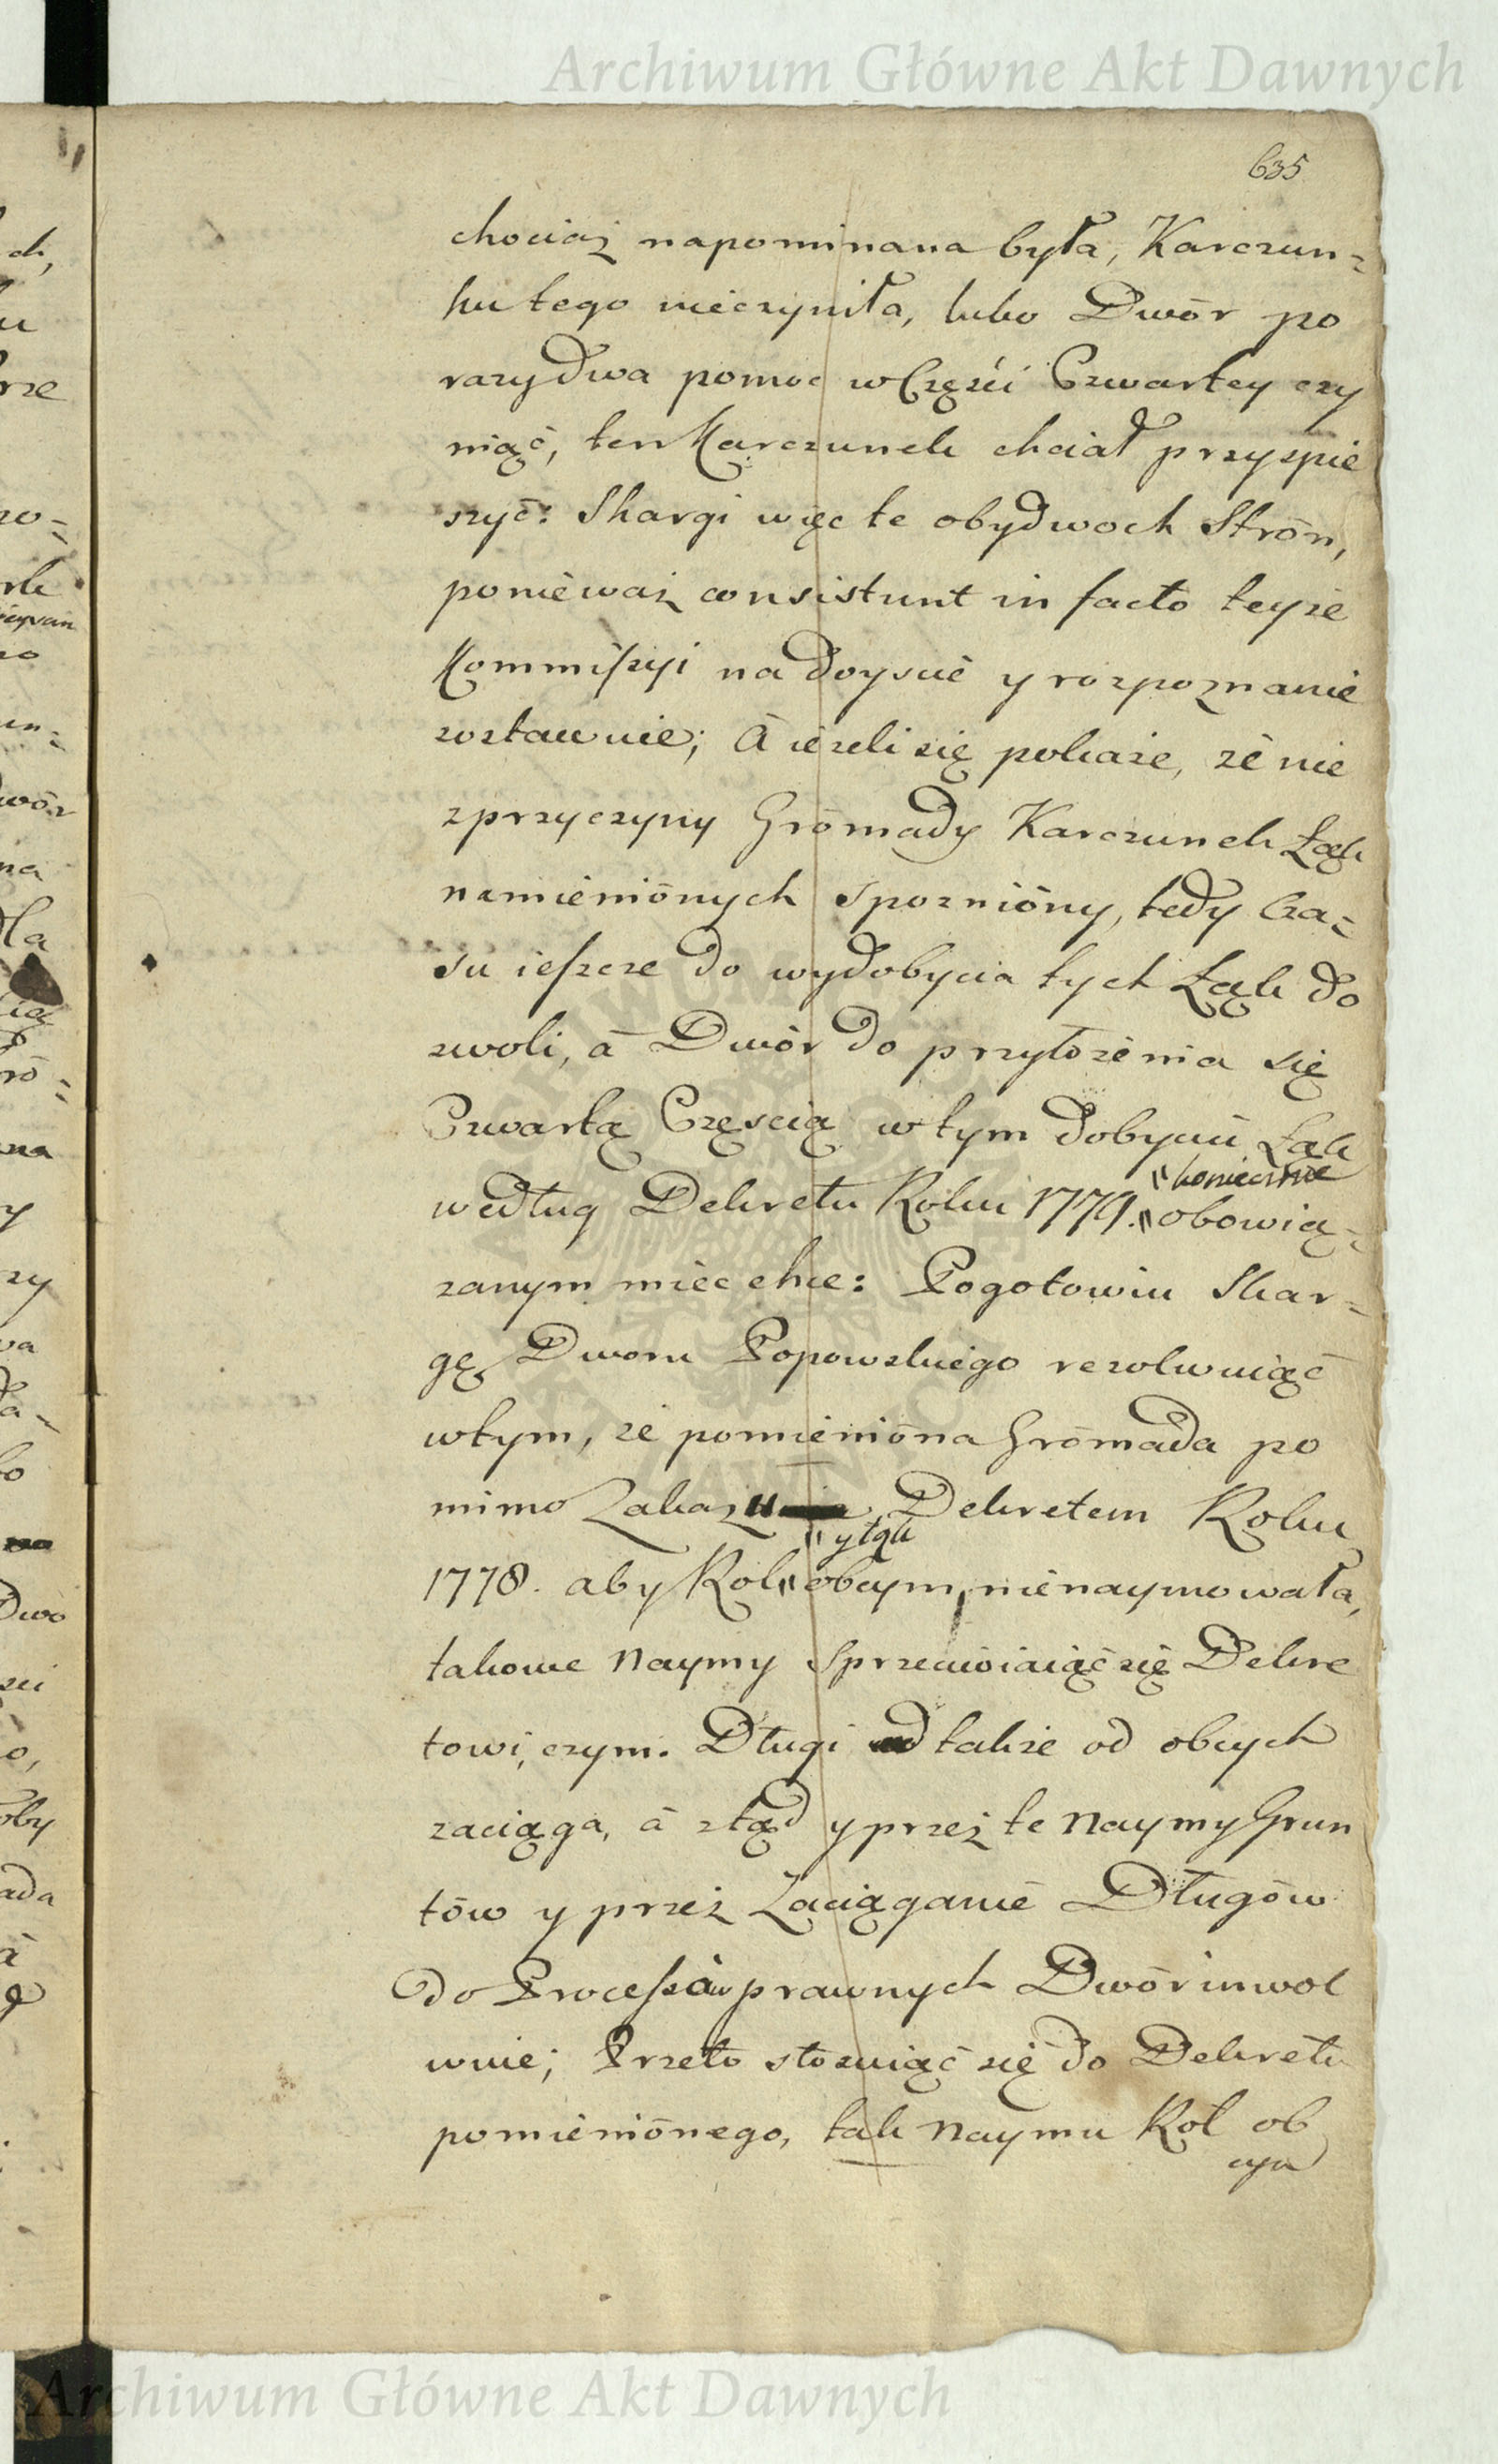 Archiwum Główne Akt Dawnych
635
chociaż napominana była, Karczun=
ku tego nieczyniła, lubo Dwór po
razy dwa pomoc w Części Czwartey czy
niąc, ten Karczunek chciał przyspie
szyć: Skargi więc te obydwoch Strōn,
ponieważ consistunt in facto teyże
Kommiſsyi na doyscie y rozpoznanie
zostawuie; A ieżeli się pokaże, że nie
z przyczyny Grōmady Karczunek Łąk
namieniōnych spozniōny, tedy Cza=
su ieſzcze do wydobycia tych Łąk do
zwoli, a Dwór do przyłożenia się
Czwartą Częscią w tym dobyciu Łąk
"koniecznie
według Dekretu Roku 1779. "obowią=
zanym miec chce: Pogotowiu Skar=
gę Dworu Popowskiego rezolwuiąc
w tym, że pomieniōna Grōmada po
mimo Zakazu Dekretem Roku
"y łąk
1778. aby Rol "obcym nienaymowała,
takowe Naymy Sprzeciwiaiąc się Dekre
towi, czym. Długi także od obcych
zaciąga, a ztąd y przez te Naymy Grun
tōw y przez Zaciąganie Długōw
do Proceſsów prawnych Dwōr inwol
wuie; Przeto stosuiąc się do Dekretu
pomieniōnego, tak Naymu Rōl ob
cym
Archiwum Główne Akt Dawnych